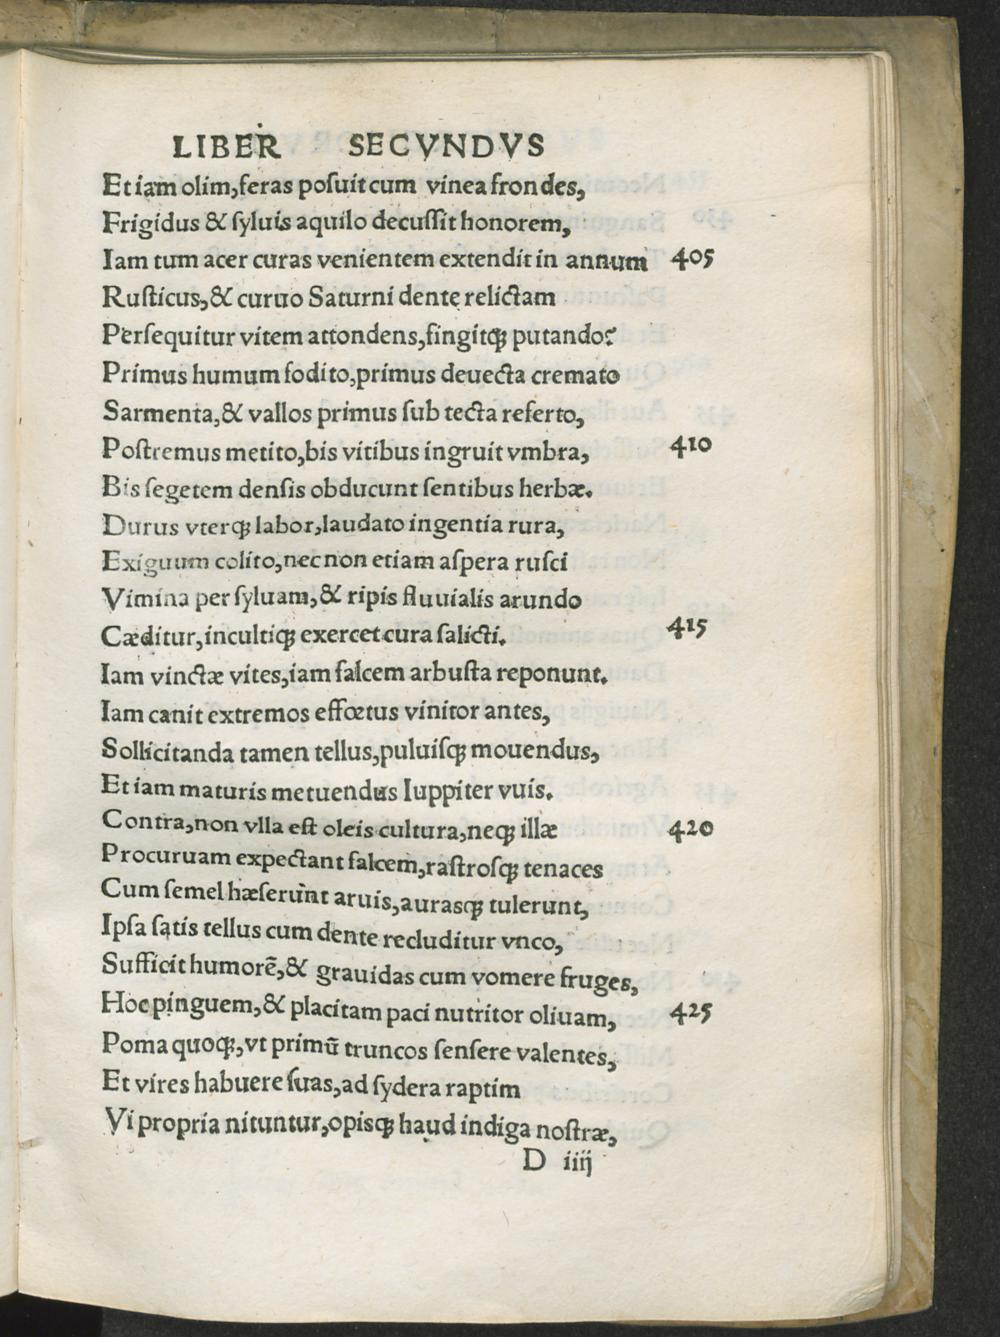 LIBER SECVNDVS
Et iam olim, feras posuit cum vinea frondes,
Frigidus & syluis aquilo decussit honorem,
Iam tum acer curas venientem extendit in annum 405
Rusticus, & curuo Saturni dente relictam
Persequitur vitem attondens, fingitqꝫ putando:
Primus humum fodito, primus deuecta cremato
Sarmenta, & vallos primus sub tecta referto,
Postremus metito, bis vitibus ingruit vmbra, 410
Bis segetem densis obducunt sentibus herbæ.
Durus vterqꝫ labor, laudato ingentia rura,
Exiguum colito, nec non etiam aspera rusci
Vimina per syluam, & ripis fluuialis arundo
Cæditur, incultiqꝫ exercet cura salicti. 415
Iam vinctæ vites, iam falcem arbusta reponunt.
Iam canit extremos effœtus vinitor antes,
Sollicitanda tamen tellus, puluisqꝫ mouendus,
Et iam maturis metuendus Iuppiter vuis.
Contra, non vlla est oleis cultura, neqꝫ illæ 420
Procuruam expectant falcem, rastrosqꝫ tenaces
Cum semel hæserunt aruis, aurasqꝫ tulerunt,
Ipsa satis tellus cum dente recluditur vnco,
Sufficit humorẽ, & grauidas cum vomere fruges,
Hoc pinguem, & placitam paci nutritor oliuam, 425
Poma quoqꝫ, vt primũ truncos sensere valentes,
Et vires habuere suas, ad sydera raptim
Vi propria nituntur, opisqꝫ haud indiga nostræ,
D iiij